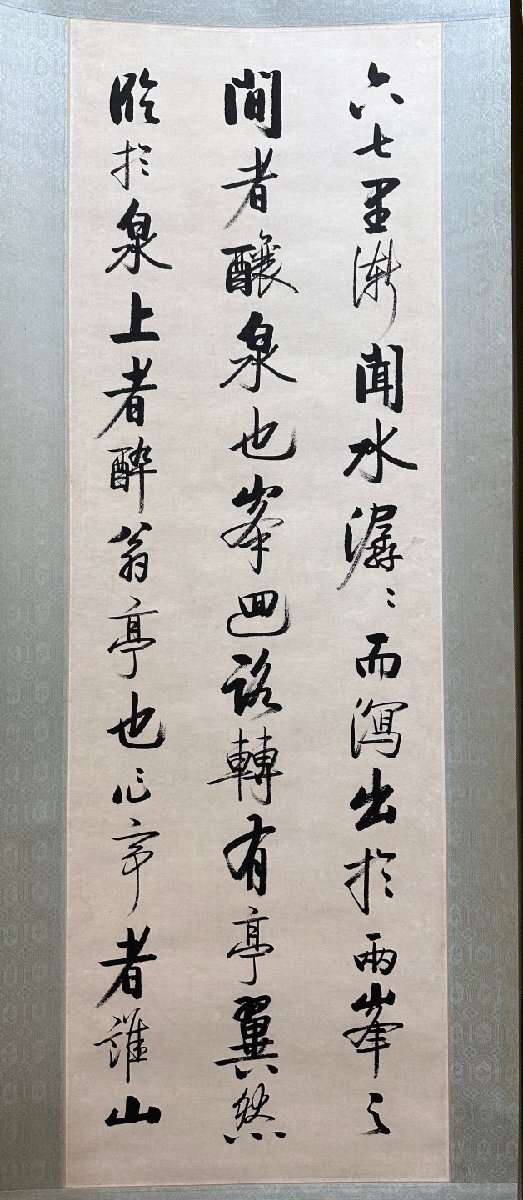 六七里漸聞水潺〻而瀉出於兩峯之
間者釀泉也峯迴路轉有亭翼然
臨於泉上者醉翁亭也作亭者誰山